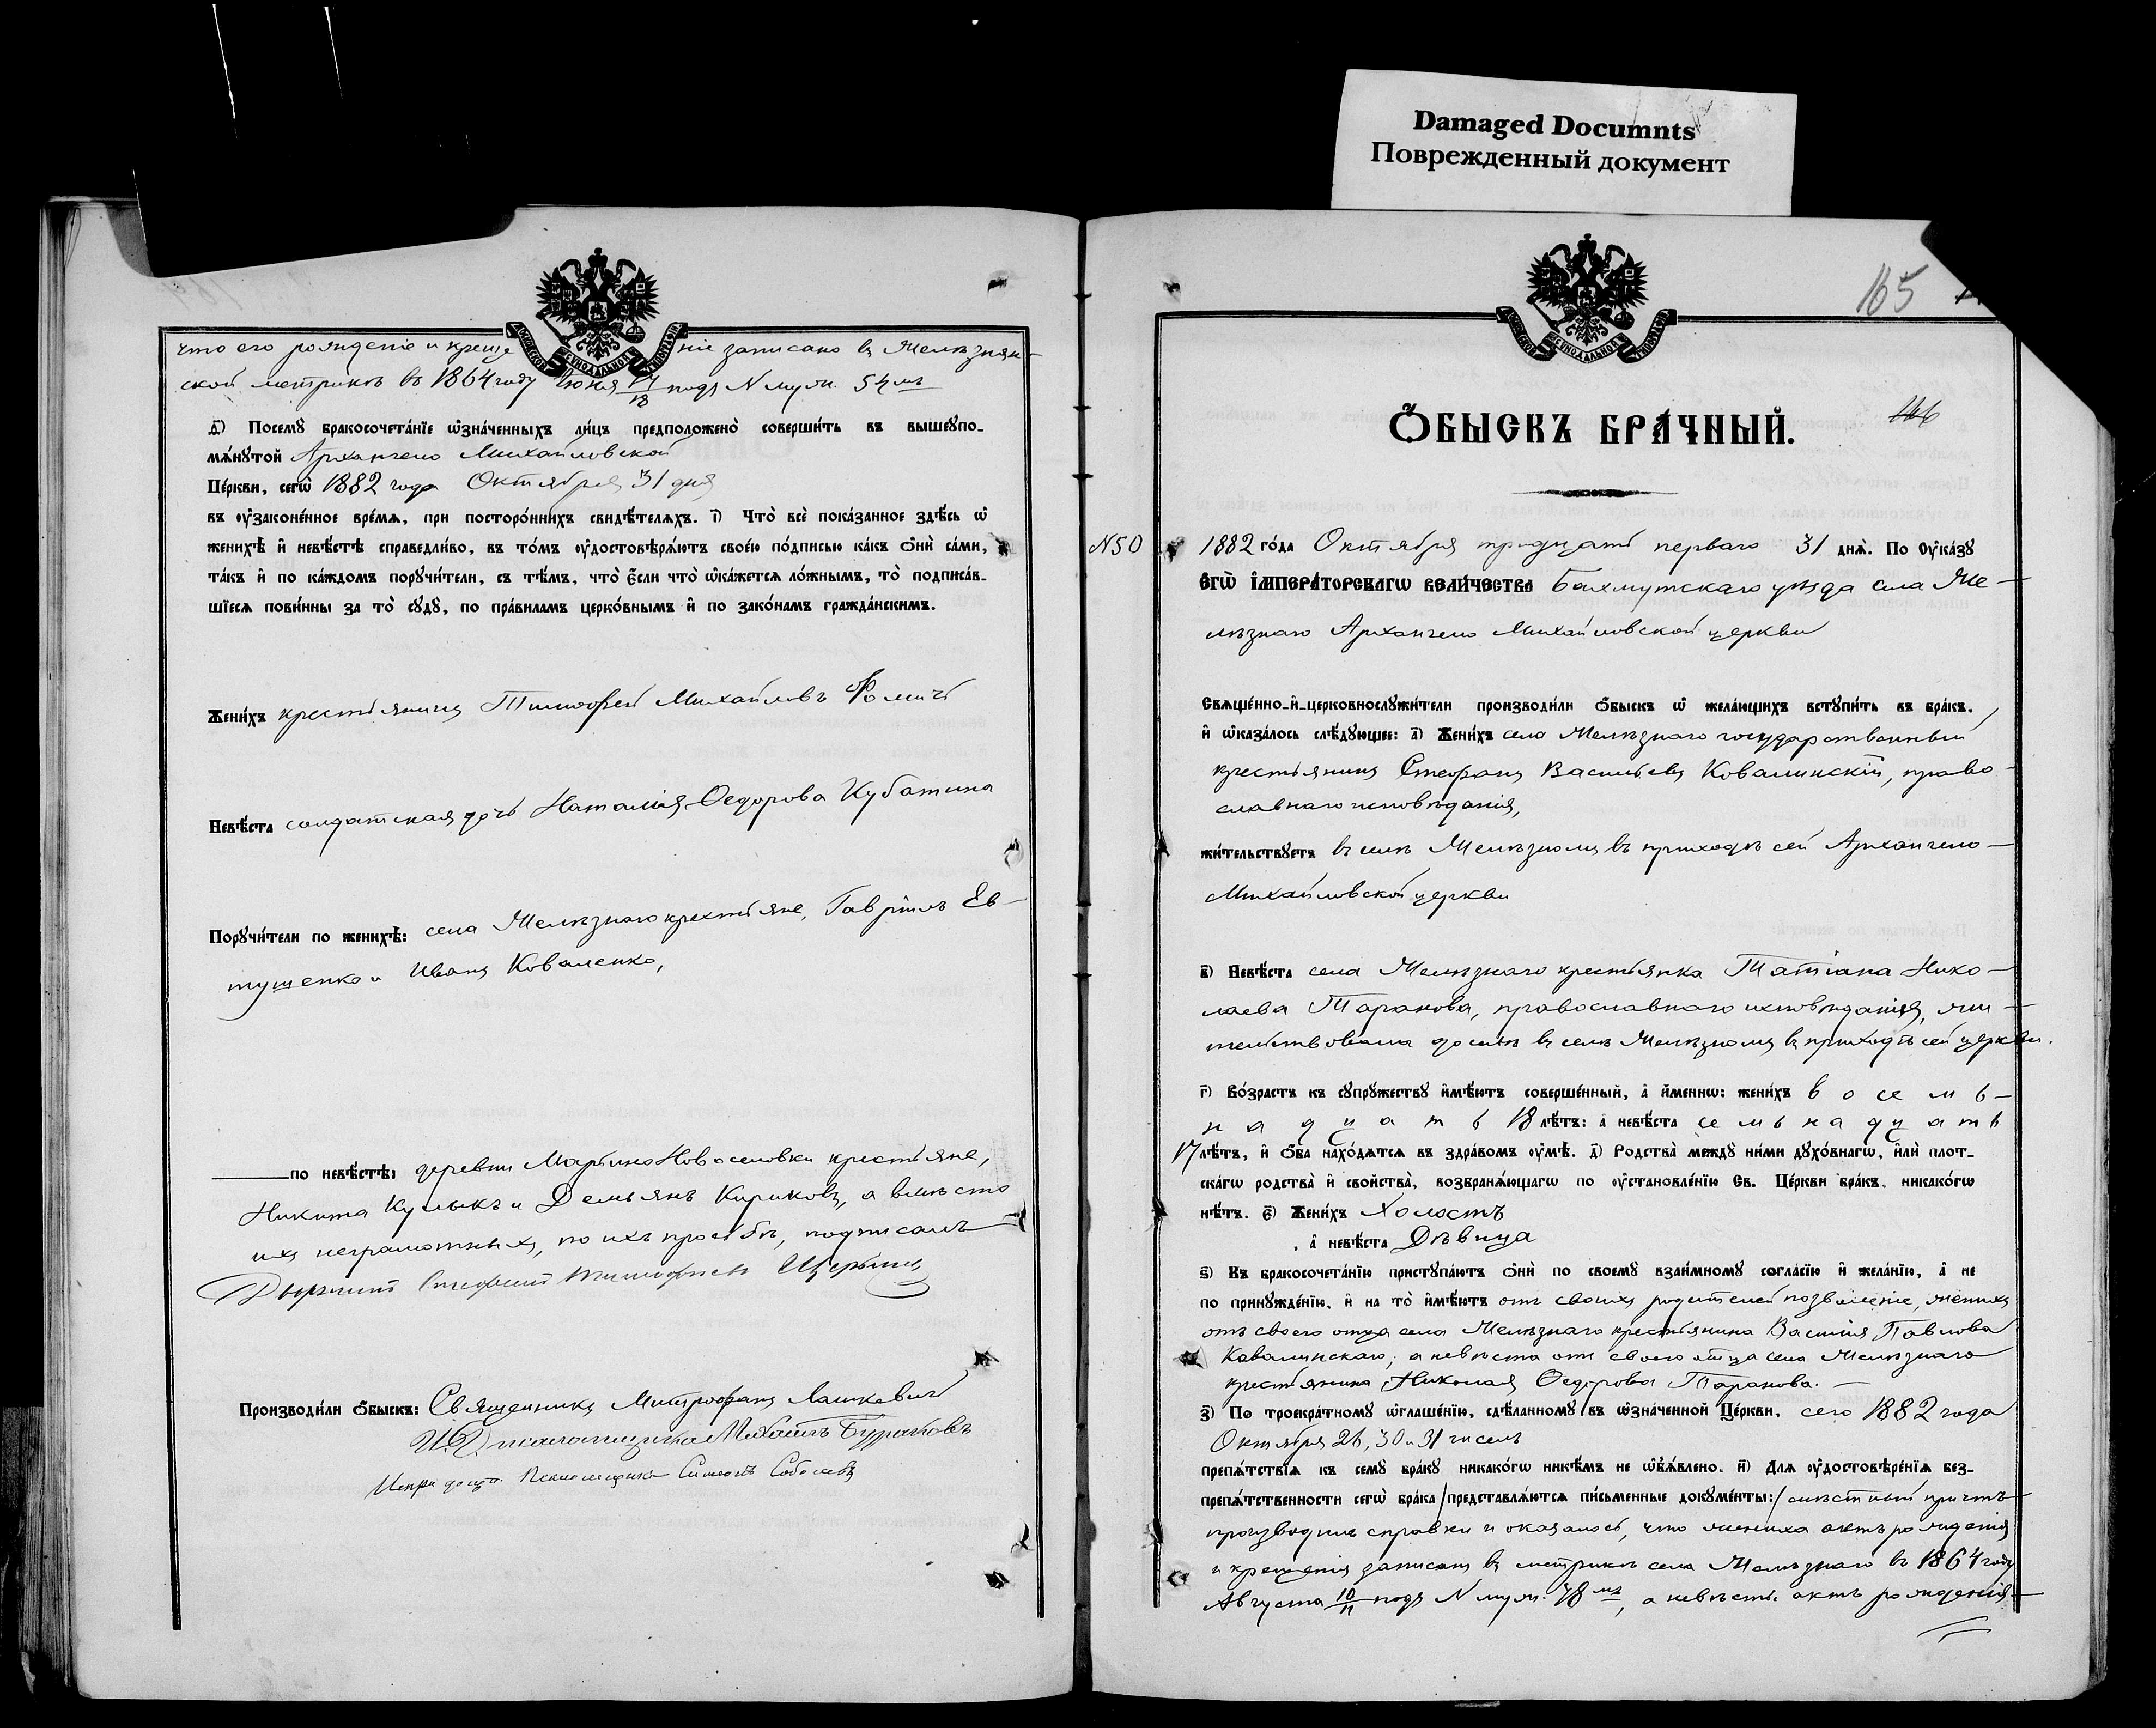 Damaged Documnts
Поврежденный документ
что его рожденіе и креще ніе записано въ Желѣзнян-
ской метрикѣ въ 1864 году Іюня 17/18 подъ N муж. 54мъ
ѳ҃) Посемꙋ бракосочета́нїе ѡ҆зна́ченныхъ ли́цъ предположено̀ соверши́ть въ вышеꙋпо-
мѧ́нꙋтой Архангело Михайловской
Це́ркви, сегѡ̀ 1882 года Октября 31 дня
въ ᲂу҆законе́нное вре́мѧ, при посторо́ннихъ свидѣ́телѧхъ. і҃) Что̀ всѐ пока́занное здѣ́сь ѡ҆
женихѣ̀ и҆ невѣ́стѣ справедли́во, въ то́мъ ᲂу҆достовѣрѧ́ютъ свое́ю по́дписью ка́къ ѻ҆нѝ са́ми,
та́къ и҆ по ка́ждомъ порꙋчи́тели, съ тѣ́мъ, что̀ є҆́сли что̀ ѡ҆ка́жетсѧ ло́жнымъ, то̀ подписа́в-
шїесѧ пови́нны за то̀ сꙋдꙋ̀, по пра́виламъ церко́внымъ и҆ по зако́намъ гражда́нскимъ.
Жени́хъ крестьянинъ Тимофей Михайловъ Фомичъ
Невѣ́ста солдатская дочь Наталія Ѳедорова Кубатина
Порꙋчи́тели по женихѣ̀: села Желѣзнаго крестьяне, Гавріилъ Ев-
тушенко и Иванъ Коваленко,
по невѣ́стѣ: деревни Марьино Новоселовки крестьяне,
Никита Кулыкъ и Демьянъ Кириковъ, а вмѣсто
ихъ неграмотныхъ, по ихъ просьбѣ, подписалъ
Дворянинъ Тимофеевъ Щербина
Производи́ли ѻ҆́быскъ: Священникъ Митрофанъ Лашкевичъ
И.Д. псаломщика Михаилъ Бураковъ
Испр. долж. Псаломщика Симеонъ Соболевъ
165
166
Ѻ҆́БЫСКЪ БРА́ЧНЫЙ.
N50
1882 го́да Октября тридцать перваго 31 днѧ̀. По ᲂу҆ка́зꙋ
Є҆гѡ̀ І҆мпера́торскагѡ Вели́чества Бахмутскаго уѣзда села Же-
лѣзнаго Архангело Михайловской церкви
Свѧще́нно-и҆-церковнослꙋжи́тели производи́ли ѻ҆́быскъ ѡ҆ жела́ющихъ встꙋпи́ть въ бра́къ,
и҆ ѡ҆каза́лось слѣ́дꙋющее: а҃) Жени́хъ села Желѣзнаго государственный
крестьянинъ Стефанъ Васильевъ Ковалинскій, право-
славнаго исповѣданія,
жи́тельствꙋетъ въ селѣ Желѣзномъ въ приходѣ сей Архангело-
Михайловской церкви
в҃) Невѣ́ста села Желѣзнаго крестьянка Татіана Нико-
лаева Таранова, православнаго исповѣданія, жи-
тельствовала доселѣ въ селѣ Желѣзномъ въ приходѣ сей церкви.
г҃) Во́зрастъ къ сꙋпрꙋ́жествꙋ и҆мѣ́ютъ соверше́нный, а҆ и҆́меннѡ: жени́хъ восемь-
надцать 18 лѣ́тъ: а҆ невѣ́ста семьнадцать
17 лѣ́тъ, и҆ ѻ҆́ба нахо́дѧтсѧ въ здра́вомъ ᲂу҆мѣ̀. д҃) Родства̀ междꙋ ни́ми дꙋхо́внагѡ, и҆лѝ плот-
ска́гѡ родства̀ и҆ свойства̀, возбранѧ́ющагѡ по ᲂу҆становле́нїю Св. Це́ркви бра́къ, никако́гѡ
нѣ́тъ. є҃) Жени́хъ Холостъ
, а҆ невѣ́ста Дѣвица
ѕ҃) Къ бракосочета́нїю пристꙋпа́ютъ ѻ҆нѝ по своемꙋ̀ взаи́мномꙋ согла́сїю и҆ жела́нїю, а҆ не
по принꙋжде́нїю, и҆ на то̀ и҆мѣ́ютъ отъ своихъ родителей позволеніе, женихъ
отъ своего отца села Желѣзнаго крестьянина Василія Павлова
Ковалинскаго; а невѣста отъ своего отца села Желѣзнаго
крестьянина Николая Ѳедорова Таранова. —
з҃) По троекра́тномꙋ ѡ҆глаше́нїю, сдѣ́ланномꙋ въ ѡ҆зна́ченной Це́ркви, сего 1882 года
Октября 26, 30 и 31 чиселъ
препѧ́тствїѧ къ семꙋ̀ бра́кꙋ никако́гѡ никѣ́мъ не ѡ҆б̾ѧ́влено. и҃) Длѧ ᲂу҆достовѣре́нїѧ без-
препѧ́тственности сегѡ̀ бра́ка /представлѧ́ютсѧ пи́сьменные докꙋме́нты:/ мѣстный причтъ
производилъ справки и оказалось, что жениха актъ рожденія
и крещенія записанъ въ метрикѣ села Желѣзнаго въ 1864 году
Августа 10/11 подъ N муж. 78мъ, а невѣсты актъ рожденія